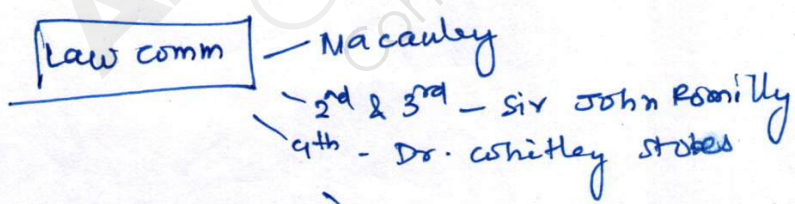 Law comm - Macauley
- 2nd & 3rd - Sir John Romilly
4th - Dr. Whitley Stokes